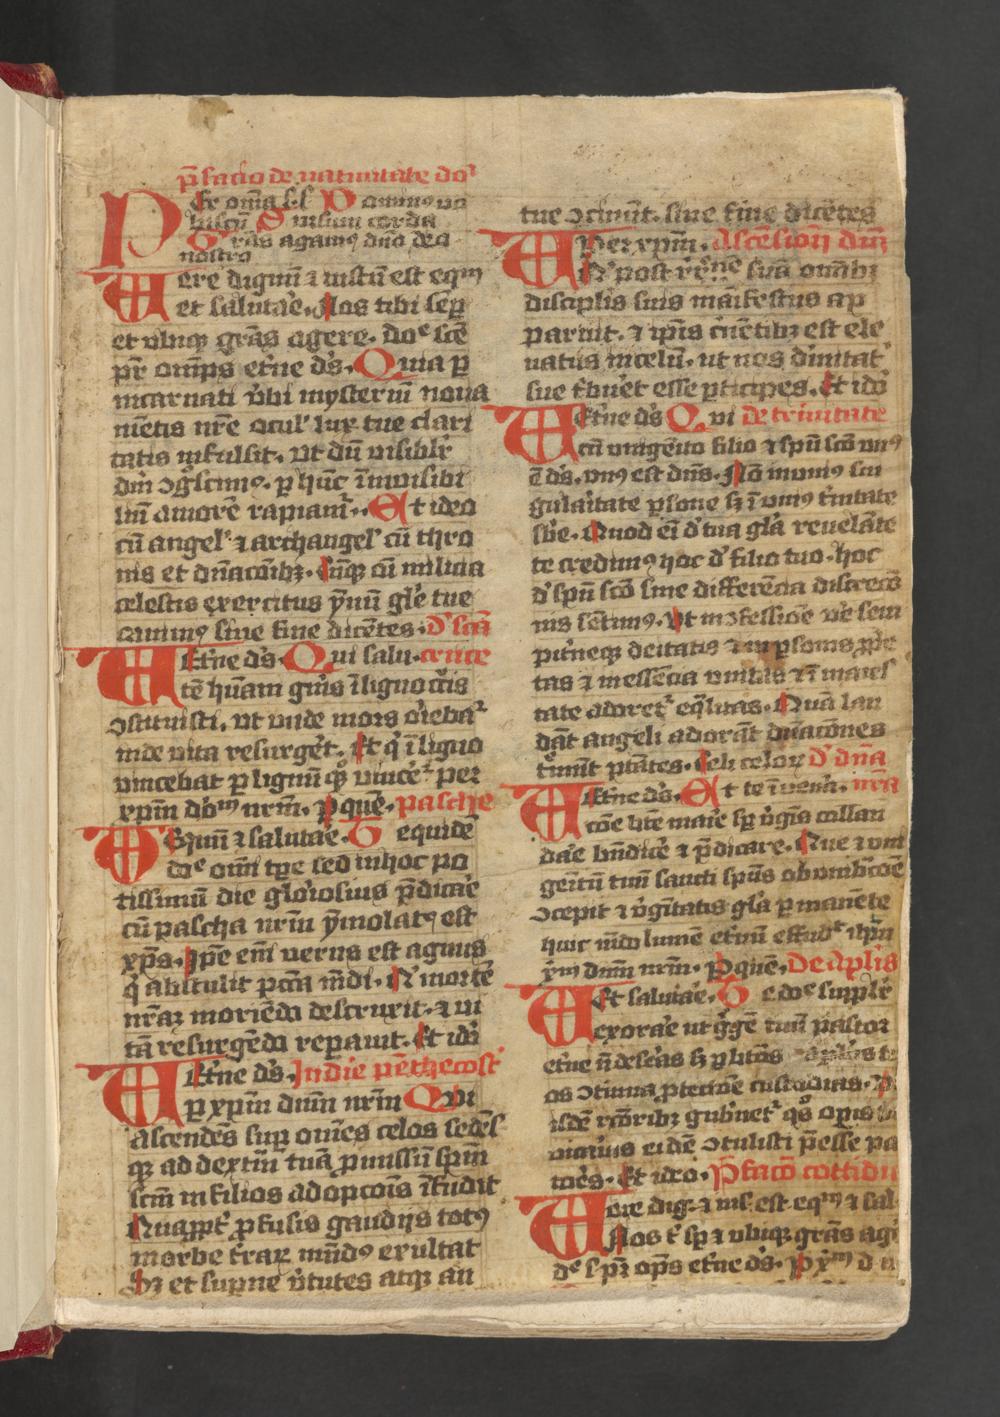 p̄facio de natiuitate do
Per om̄ia s̄cl D ominus uo
biscū S ursum corda
G rās agamus dn̄o deo
nostro
Uere dignū ⁊ iustū est eqm
et salutae. Nos tibi sēp
et ubiqȝ grās agere. doe scē
pr̄ om̄ps etne ds. Quia p
incarnati ubi mysteriū noua
mētis nr̄e ocul' lux tue clari
tatis infulsit. Vt dū uisibilr
dm ꝯgscimus. p hūc īuisibi
liū amorē rapiamr. Et ideo
cū angel' ⁊ archangel' cū thro
nis et dn̄acōibȝ. Cūqȝ oī milicia
celestis exercitus ymnū gl'e tue
canimus sine fine dicētes. d' scā
UEtne ds. Qui salu cruce
tē huām gnis ī ligno cr̄cis
ꝯstituisti. vt unde mors oriebar
inde uita resurget. Et q' ī ligno
uincebat p lignū qȝ uincet per
xpm dom nrm. p quē. pasche
Dignū ⁊ salutae. T e quidē
doe om̄i tpe sed in hoc po
tissimū die gloriosius p̄dicae
cū pascha nrm ymolatus est
xps. Ipe em̄ uerus est agnus
q' abstulit pctā mdi. Q' mortē
nrāȝ moriēdo destruxit. ⁊ ui
tā resurgēdo reparauit. Et ido
UEtne ds. In die pēthecost
p xpm dnm nrm Qui
Ascendēs sup om̄es celos sedēs
qȝ ad dextrā tuā promissū spm
scm in filios adopcōis īfudit
Quappt' p fusis gaudijs totus
in orbe trar mūdus exultat
Sȝ et supne v̄tutes atqȝ an
tue ꝯcinūt. sine fine dicētes
UPer xpm. Ascēsion dn̄i
Q' post r̄r̄ne suā om̄ibȝ
disciplis suis māifestus ap
paruit. ⁊ ip̄is c̄nētibȝ est ele
uatus in celū. ut nos diuitat'
sue t'buet esse pticipes. Et ido
UEtne ds Qui de trinitate
cū unigeito filio ⁊ spū scō vnus
ē ds. vnus est dn̄s. Nō in unius sin
gularitate psone sȝ ī unius trinitate
sbe. Quod ei d' tua gla reuelāte
te credimus hoc d' filio tuo. hoc
d' spū scō sine differēcia discrecō
nis sētimus. Vt in ꝯfessioe ve sem
pitneqȝ deitatis ⁊ in psonis ppe
tas ⁊ in essēcia unitas ⁊ ī maies
tate adoret eq̄litas. Quā lau
dāt angeli adorāt dn̄acōnes
timūt ptātes. Celi celor D' dn̄a
UEtne ds. Et te ī uenā. nr̄a
cōe bte maie sp ūgis collau
dae bndice ⁊ p̄dicare. Que ⁊ uni
geītū tuū sancti spūs obumbcōe
ꝯcepit ⁊ ūgitatis gla pmanēte
huic mdo lumē etnū effudt ihm
xm dnm nrm. P quē. De aplis
UEt salutae. T e doe supplr
exorae ut gge tuū pastor
etne ñ deseas sȝ p btōs aplos t
os ꝯtinua ptectōe custodias.
isdē rcōribȝ gubnet qȝ opis
vicarios eidē ꝯtulisti p̄esse pa
tores. Et ideo. P̄facō cottidi
Uere dig ⁊ ius est eqm ⁊ sal
Nos t' sp ⁊ ubiqȝ grās agē
de s prȝ ops etne ds. P xm d n